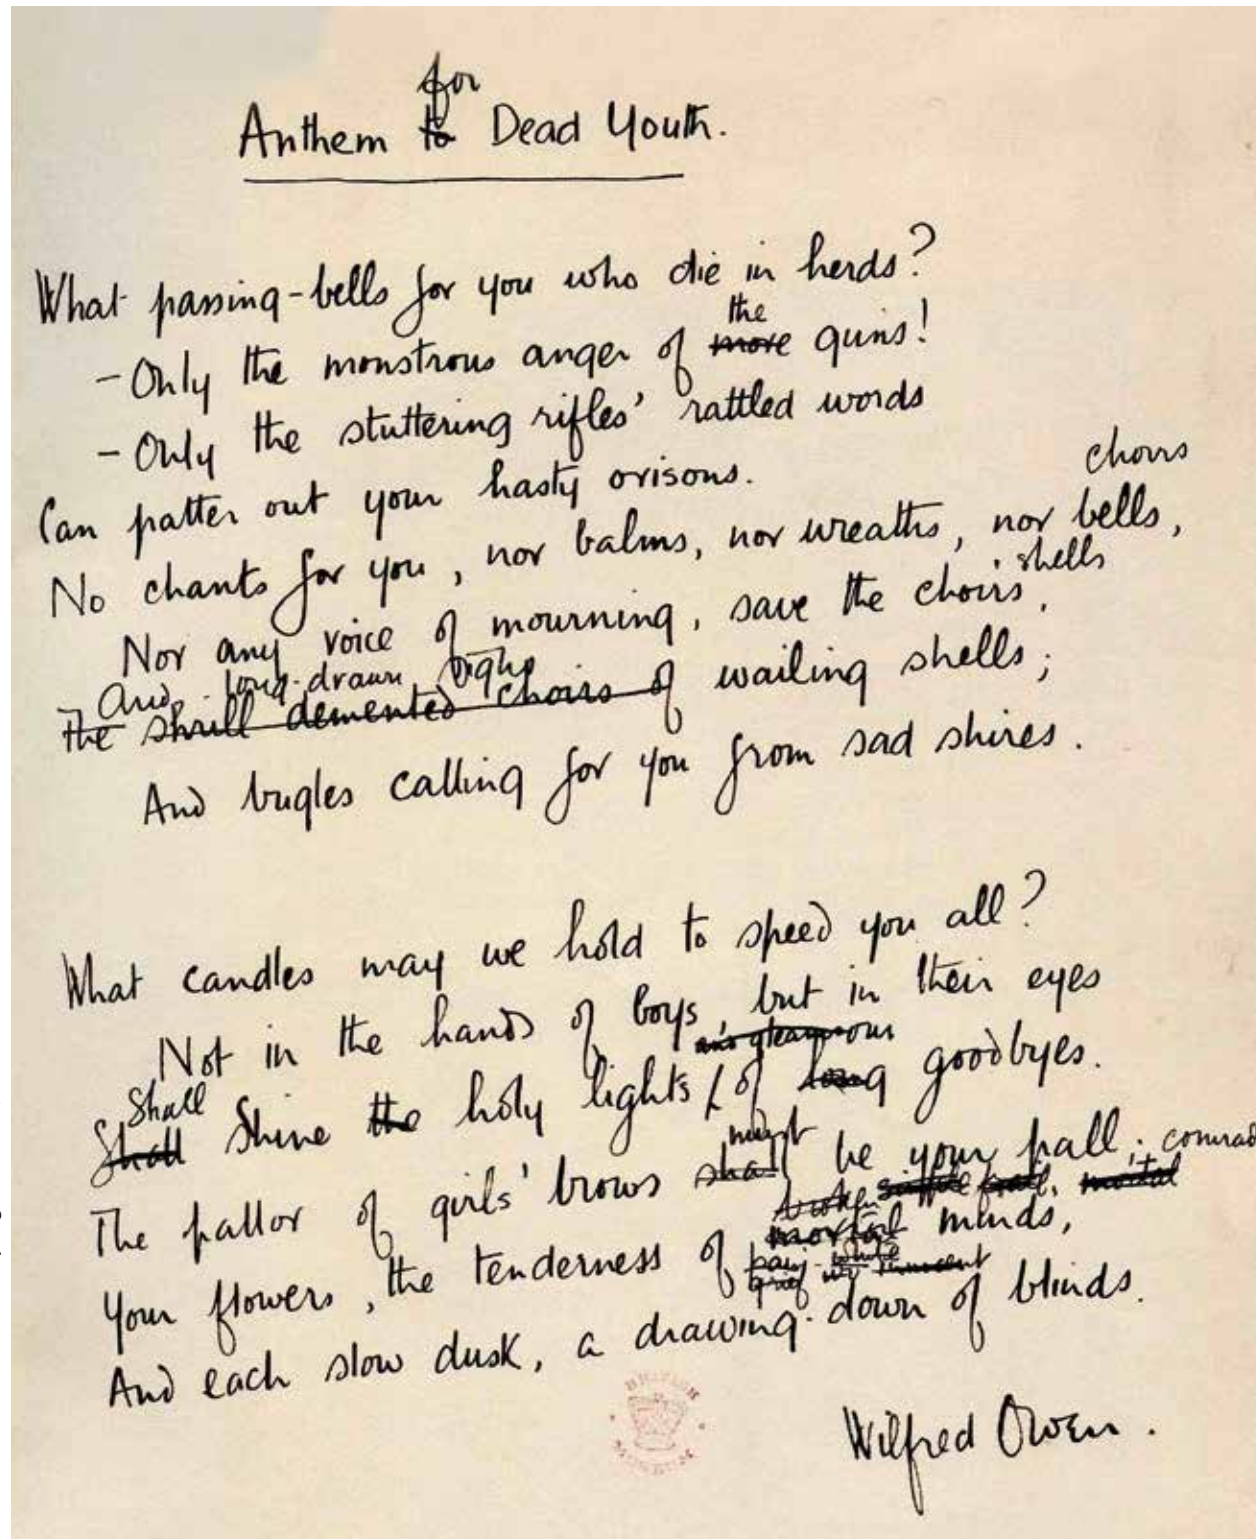 for
Anthem to Dead Youth.
What passing-bells for you who die in herds?
the
- Only the monstrous anger of more guns!
- Only the stuttering rifles' rattled words
Can patter out your hasty orisons.
choirs
No chants for you, nor balms, nor wreaths, nor bells,
shells
Nor any voice of mourning, save the choirs,
And long-drawn sighs
The shrill demented choirs of wailing shells;
And bugles calling for you from sad shires.
What candles may we hold to speed you all?
Not in the hands of boys, but in their eyes
and gleams our
Shall
Shall Shine the holy lights / of long goodbyes.
must
The pallor of girls' brows shall be your pall;
comrad
broken simple frail, mortal
Your flowers, the tenderness of mortal minds,
pain-white
grief innocent
And each slow dusk, a drawing-down of blinds.
Wilfred Owen.
BRITISH
MUSEUM